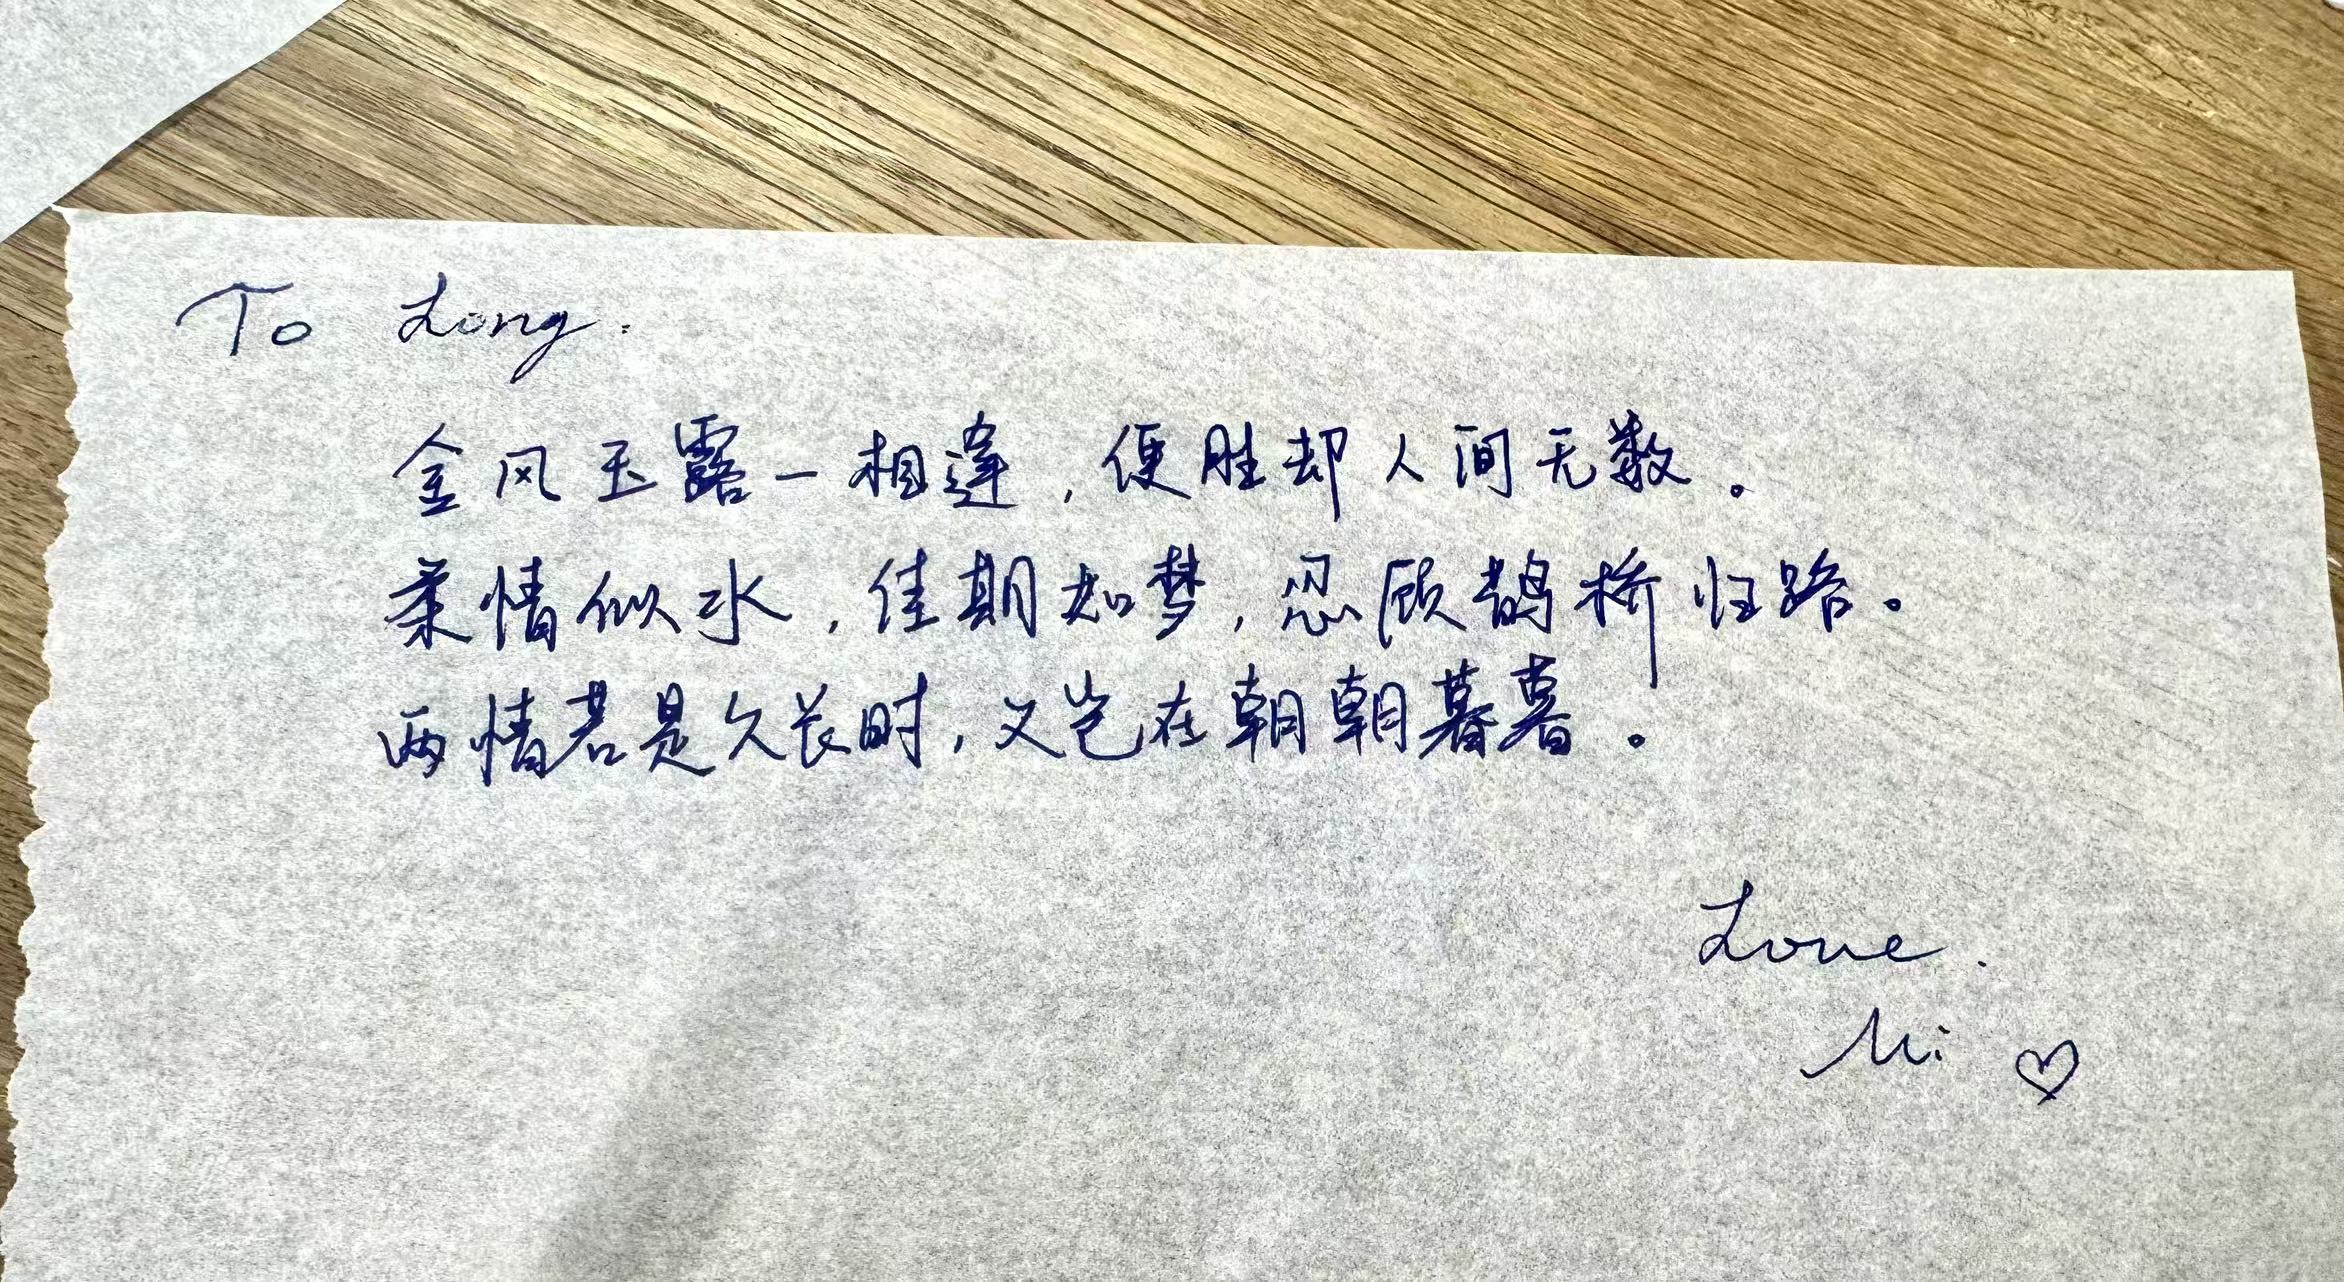 To Long:
金风玉露一相逢，便胜却人间无数。
柔情似水，佳期如梦，忍顾鹊桥归路。
两情若是久长时，又岂在朝朝暮暮。
Love.
Mi ♡